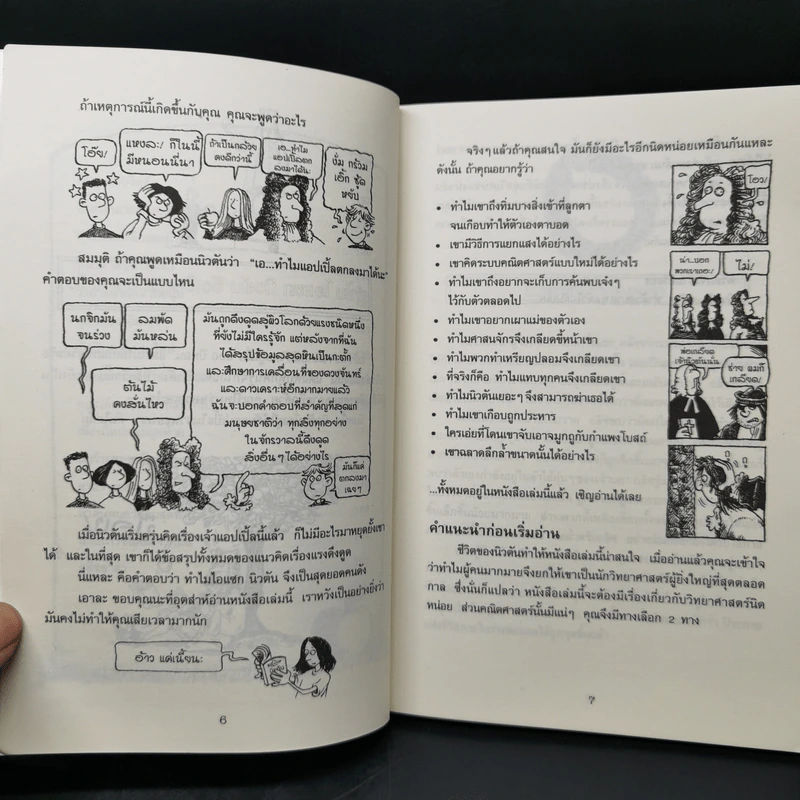 ถ้าเหตุการณ์นี้เกิดขึ้นกับคุณ คุณจะพูดว่าอะไร
โอ๊ย!
แหงละ! ก็ในนี้
มีหนอนนี่นา
ถ้าเป็นกล้วย
คงลึกว่านี้
เอ..ทำไม
แอปเปิ้ลตก
ลงมาได้นะ
งั่ม กร้วม
เอิ๊ก ซูด
หยับ
สมมุติ ถ้าคุณพูดเหมือนนิวตันว่า "เอ...ทำไมแอปเปิ้ลตกลงมาได้นะ"
คำตอบของคุณจะเป็นแบบไหน
นกจิกมัน
จนร่วง
ลมพัด
มันหล่น
ต้นไม้
คงสั่นไหว
มันถูกดึงดูดสู่ผิวโลกด้วยแรงชนิดหนึ่ง
ที่ยังไม่มีใครรู้จัก แต่หลังจากที่ฉัน
ได้สรุปข้อมูลสุดหินเป็นตั้ก
และศึกษาการเคลื่อนที่ของดวงจันทร์
และดาวเคราะห์อีกมากมายแล้ว
ฉันจะบอกคำตอบที่สำคัญที่สุดแก่
มนุษยชาติว่า ทุกสิ่งทุกอย่าง
ในจักรวาลนี้ดึงดูด
สิ่งอื่นๆ ได้อย่างไร
มันก็แค่
ตกลงมา
เฉยๆ
เมื่อนิวตันเริ่มครุ่นคิดเรื่องเจ้าแอปเปิ้ลนี้แล้ว ก็ไม่มีอะไรมาหยุดยั้งเขา
ได้ และในที่สุด เขาก็ได้ข้อสรุปทั้งหมดของแนวคิดเรื่องแรงดึงดูด
นี่แหละ คือคำตอบว่า ทำไมไอแซก นิวตัน จึงเป็นสุดยอดคนดัง
เอาละ ขอบคุณนะที่อุตส่าห์อ่านหนังสือเล่มนี้ เราหวังเป็นอย่างยิ่งว่า
มันคงไม่ทำให้คุณเสียเวลามากนัก
อ้าว แค่เนี้ยนะ
6
จริงๆ แล้วถ้าคุณสนใจ มันก็ยังมีอะไรอีกนิดหน่อยเหมือนกันแหละ
ดังนั้น ถ้าคุณอยากรู้ว่า
โอว!
• ทำไมเขาถึงทิ่มบางสิ่งเข้าที่ลูกตา
จนเกือบทำให้ตัวเองตาบอด
• เขามีวิธีการแยกแสงได้อย่างไร
• เขาคิดระบบคณิตศาสตร์แบบใหม่ได้อย่างไร
• ทำไมเขาถึงอยากจะเก็บการค้นพบเจ๋งๆ
ไว้กับตัวตลอดไป
• ทำไมเขาอยากเผาแม่ของตัวเอง
• ทำไมศาสนจักรจึงเกลียดขี้หน้าเขา
• ทำไมพวกทำเหรียญปลอมจึงเกลียดเขา
• ที่จริงก็คือ ทำไมแทบทุกคนจึงเกลียดเขา
• ทำไมนิวตันเยอะๆ จึงสามารถฆ่าเธอได้
• ทำไมเขาเกือบถูกประหาร
• ใครเอ่ยที่โดนเขาจับเอาจมูกถูกับกำแพงโบสถ์
• เขาฉลาดลึกล้ำขนาดนั้นได้อย่างไร
น่า..บอก
พวกเขาเถอะ!
ไม่!
พ่อเกลียด
เจ้านิวตันนั่น
ช่าย ผมก็
เกลียด!
...ทั้งหมดอยู่ในหนังสือเล่มนี้แล้ว เชิญอ่านได้เลย
คำแนะนำก่อนเริ่มอ่าน
ชีวิตของนิวตันทำให้หนังสือเล่มนี้น่าสนใจ เมื่ออ่านแล้วคุณจะเข้าใจ
ว่าทำไมผู้คนมากมายจึงยกให้เขาเป็นนักวิทยาศาสตร์ผู้ยิ่งใหญ่ที่สุดตลอด
กาล ซึ่งนั่นก็แปลว่า หนังสือเล่มนี้จะต้องมีเรื่องเกี่ยวกับวิทยาศาสตร์นิด
หน่อย ส่วนคณิตศาสตร์นั้นมีแน่ๆ คุณจึงมีทางเลือก 2 ทาง
7